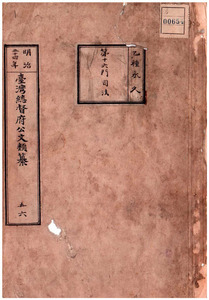 乙種永久
第十六門司法
明治
十四年
臺灣總督府公文類纂
五六